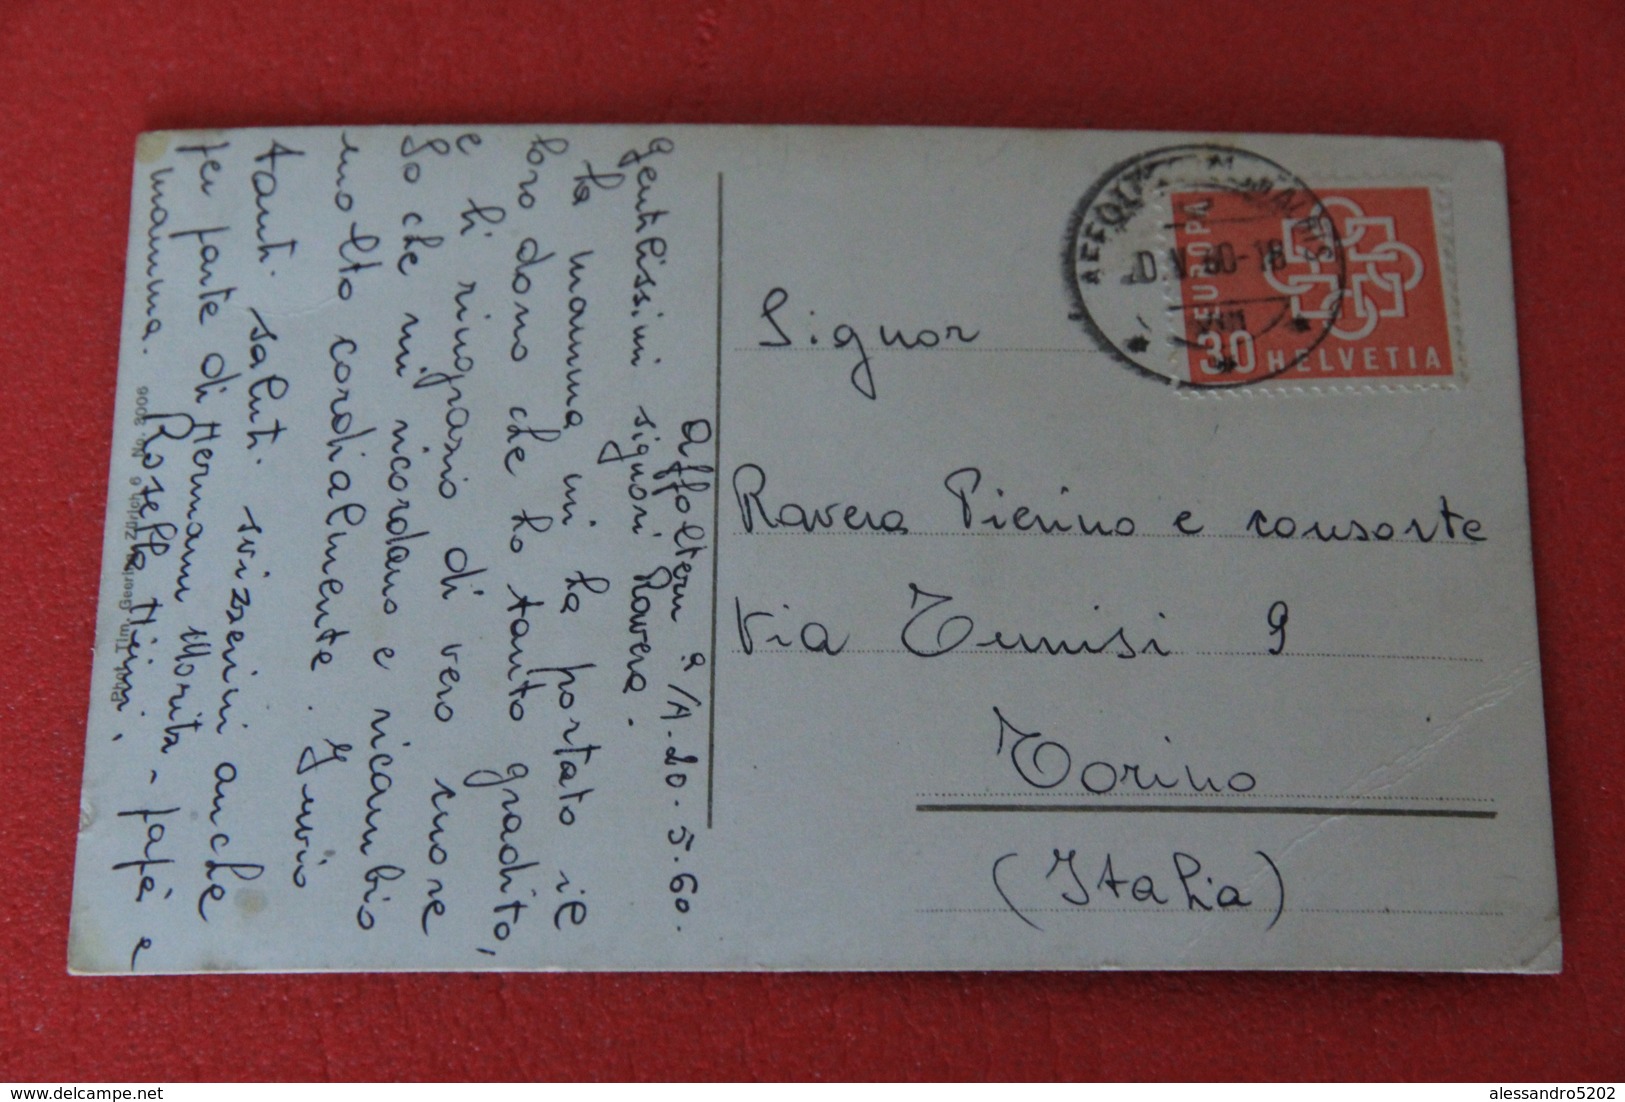 Affoltern a/A. 20.5.60.
gentilissimi signori Ravera.
la mamma mi ha portato il
loro dono che ho tanto gradito,
e li ringrazio di vero cuore
So che mi ricordano e ricambio
molto cordialmente. Gervio
tanti saluti svizzerini anche
per parte di Hermann Morita - papà e
mamma. Rosella Mimi.
Photo Tim. Geering Zürich 6 No. 3006
AFFOLTERN ALBIS
0.V.60-18
EUROPA
30 HELVETIA
Signor
Ravera Pierino e consorte
Via Tunisi 9
Torino
(Italia)
alessandro5202